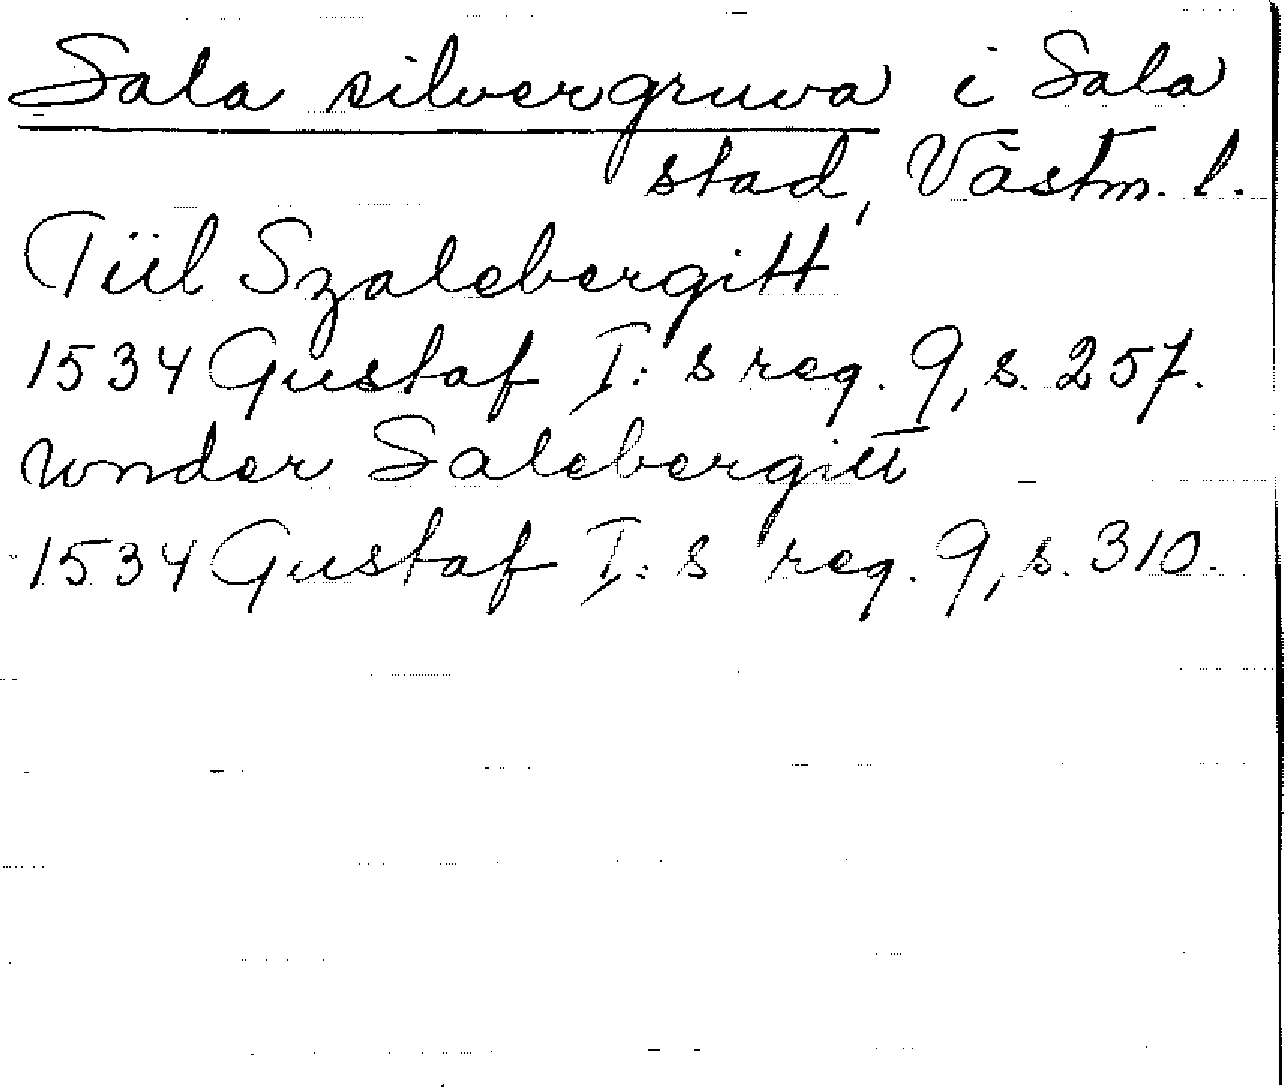 Sala silvergruva i Sala
stad, Västm. l.
Tiil Szalebergitt
1534 Gustaf I:s reg. 9, s. 257.
wnder Salebergitt
1534 Gustaf I:s reg. 9, s. 310.